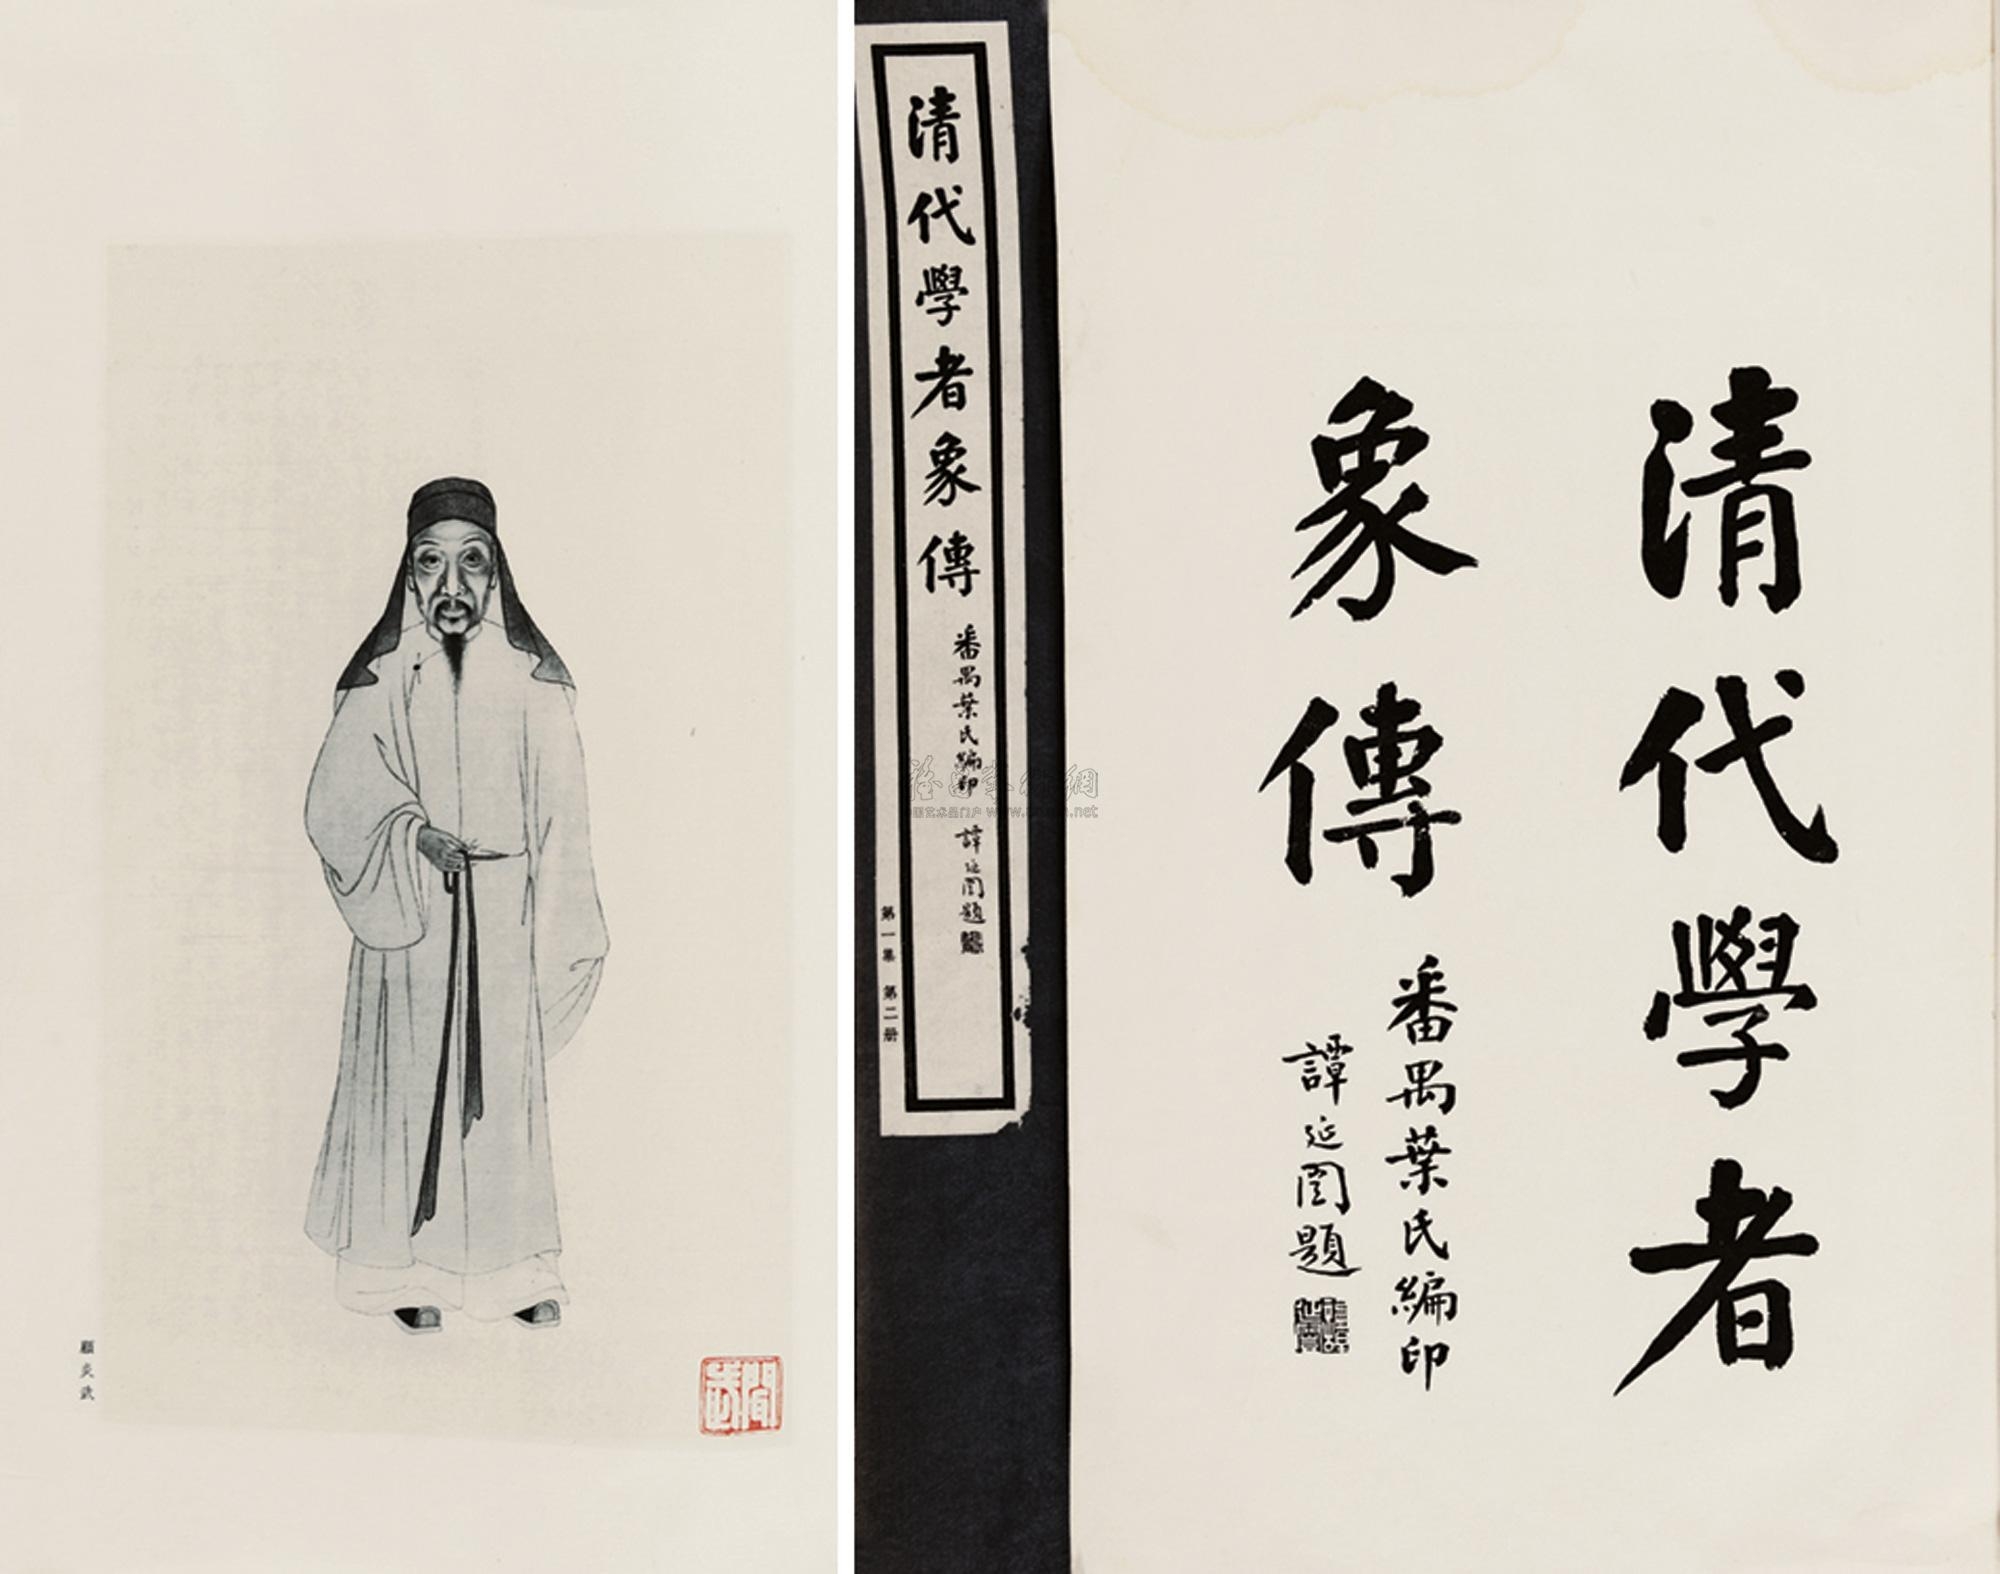 顧炎武
清代學者象傳
番禺葉氏編印
譚延闓題
第一集 第二册
清代學者
象傳
番禺葉氏編印
譚延闓題